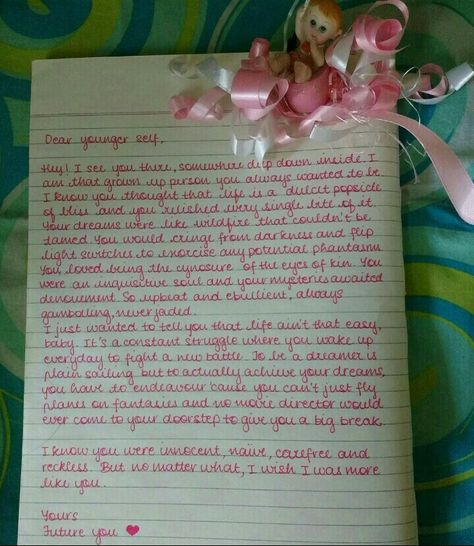 Dear younger self,
Hey! I see you there, somewhere deep down inside. I
am that grown up person you always wanted to be.
I know you thought that life is a dulcet popsicle
of bliss and you relished every single bite of it.
Your dreams were like wildfire that couldn't be
tamed. You would cringe from darkness and flip
light switches to exorcise any potential phantasm.
You loved being the cynosure of the eyes of kin. You
were an inquisitive soul and your mysteries awaited
denoument. So upbeat and ebullient, always
gamboling, never jaded.
I just wanted to tell you that life ain't that easy,
baby. It's a constant struggle where you wake up
everyday to fight a new battle. To be a dreamer is
plain sailing but to actually achieve your dreams,
you have to endeavour 'cause you can't just fly
planes on fantasies and no movie director would
ever come to your doorstep to give you a big break.
I know you were innocent, naive, carefree and
reckless. But no matter what, I wish I was more
like you.
Yours
Future you ❤